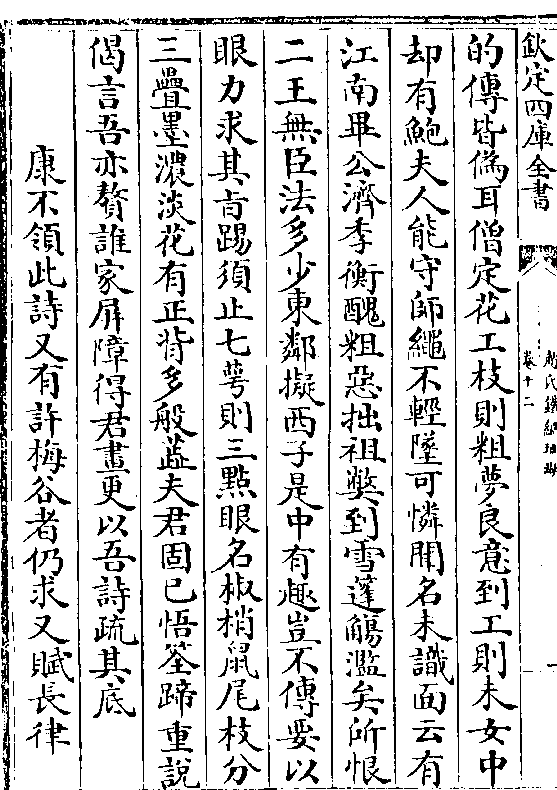 欽定四庫全書
趙氏鐵網珊瑚
卷十二
的傳皆僞耳僧定花工枝則粗夢良意到工則未女中
却有鮑夫人能守師繩不輕墜可憐聞名未識面云有
江南畢公濟季衡醜粗惡拙祖弊到雪蓬觴濫矣所恨
二王無臣法多少東鄰擬西子是中有趣豈不傳要以
眼力求其旨踢須止七萼則三點眼名椒梢鼠尾枝分
三疊墨濃淡花有正背多般蕋夫君固已悟筌蹄重說
偈言吾亦贅誰家屏障得君畫更以吾詩疏其底
康不領此詩又有許梅谷者仍求又賦長律